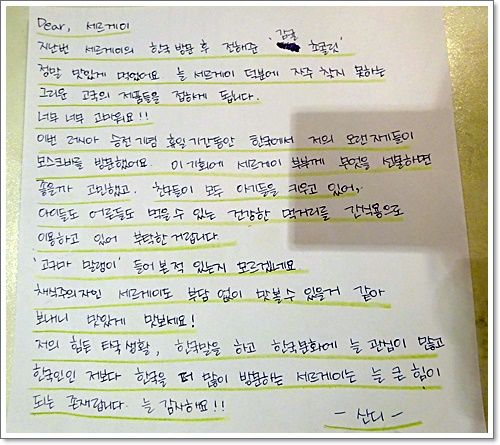 Dear, 세르게이
지난번 세르게이의 한국 방문 후 전해준 '감귤 초콜릿'
정말 맛있게 먹었어요 늘 세르게이 덕분에 자주 찾지 못하는
그리운 고국의 제품들을 접하게 됩니다.
너무 너무 고마워요!!
이번 러시아 승전 기념 휴일 기간동안 한국에서 저의 오랜 지기들이
모스크바를 방문했어요 이 기회에 세르게이 부부께 무엇을 선물하면
좋을까 고민했고. 친구들이 모두 아기들을 키우고 있어,
아이들도 어른들도 먹을 수 있는 건강한 먹거리를 간식용으로
이용하고 있어 부탁한 거랍니다
'고구마 말랭이' 들어 본 적 있는지 모르겠네요
채식주의자인 세르게이도 부담 없이 맛볼 수 있을거 같아
보내니 맛있게 맛보세요!
저의 힘든 타국 생활, 한국말을 하고 한국문화에 늘 관심이 많고
한국인인 저보다 한국을 더 많이 방문하는 세르게이는 늘 큰 힘이
되는 존재랍니다. 늘 감사해요!!
- 산디 -